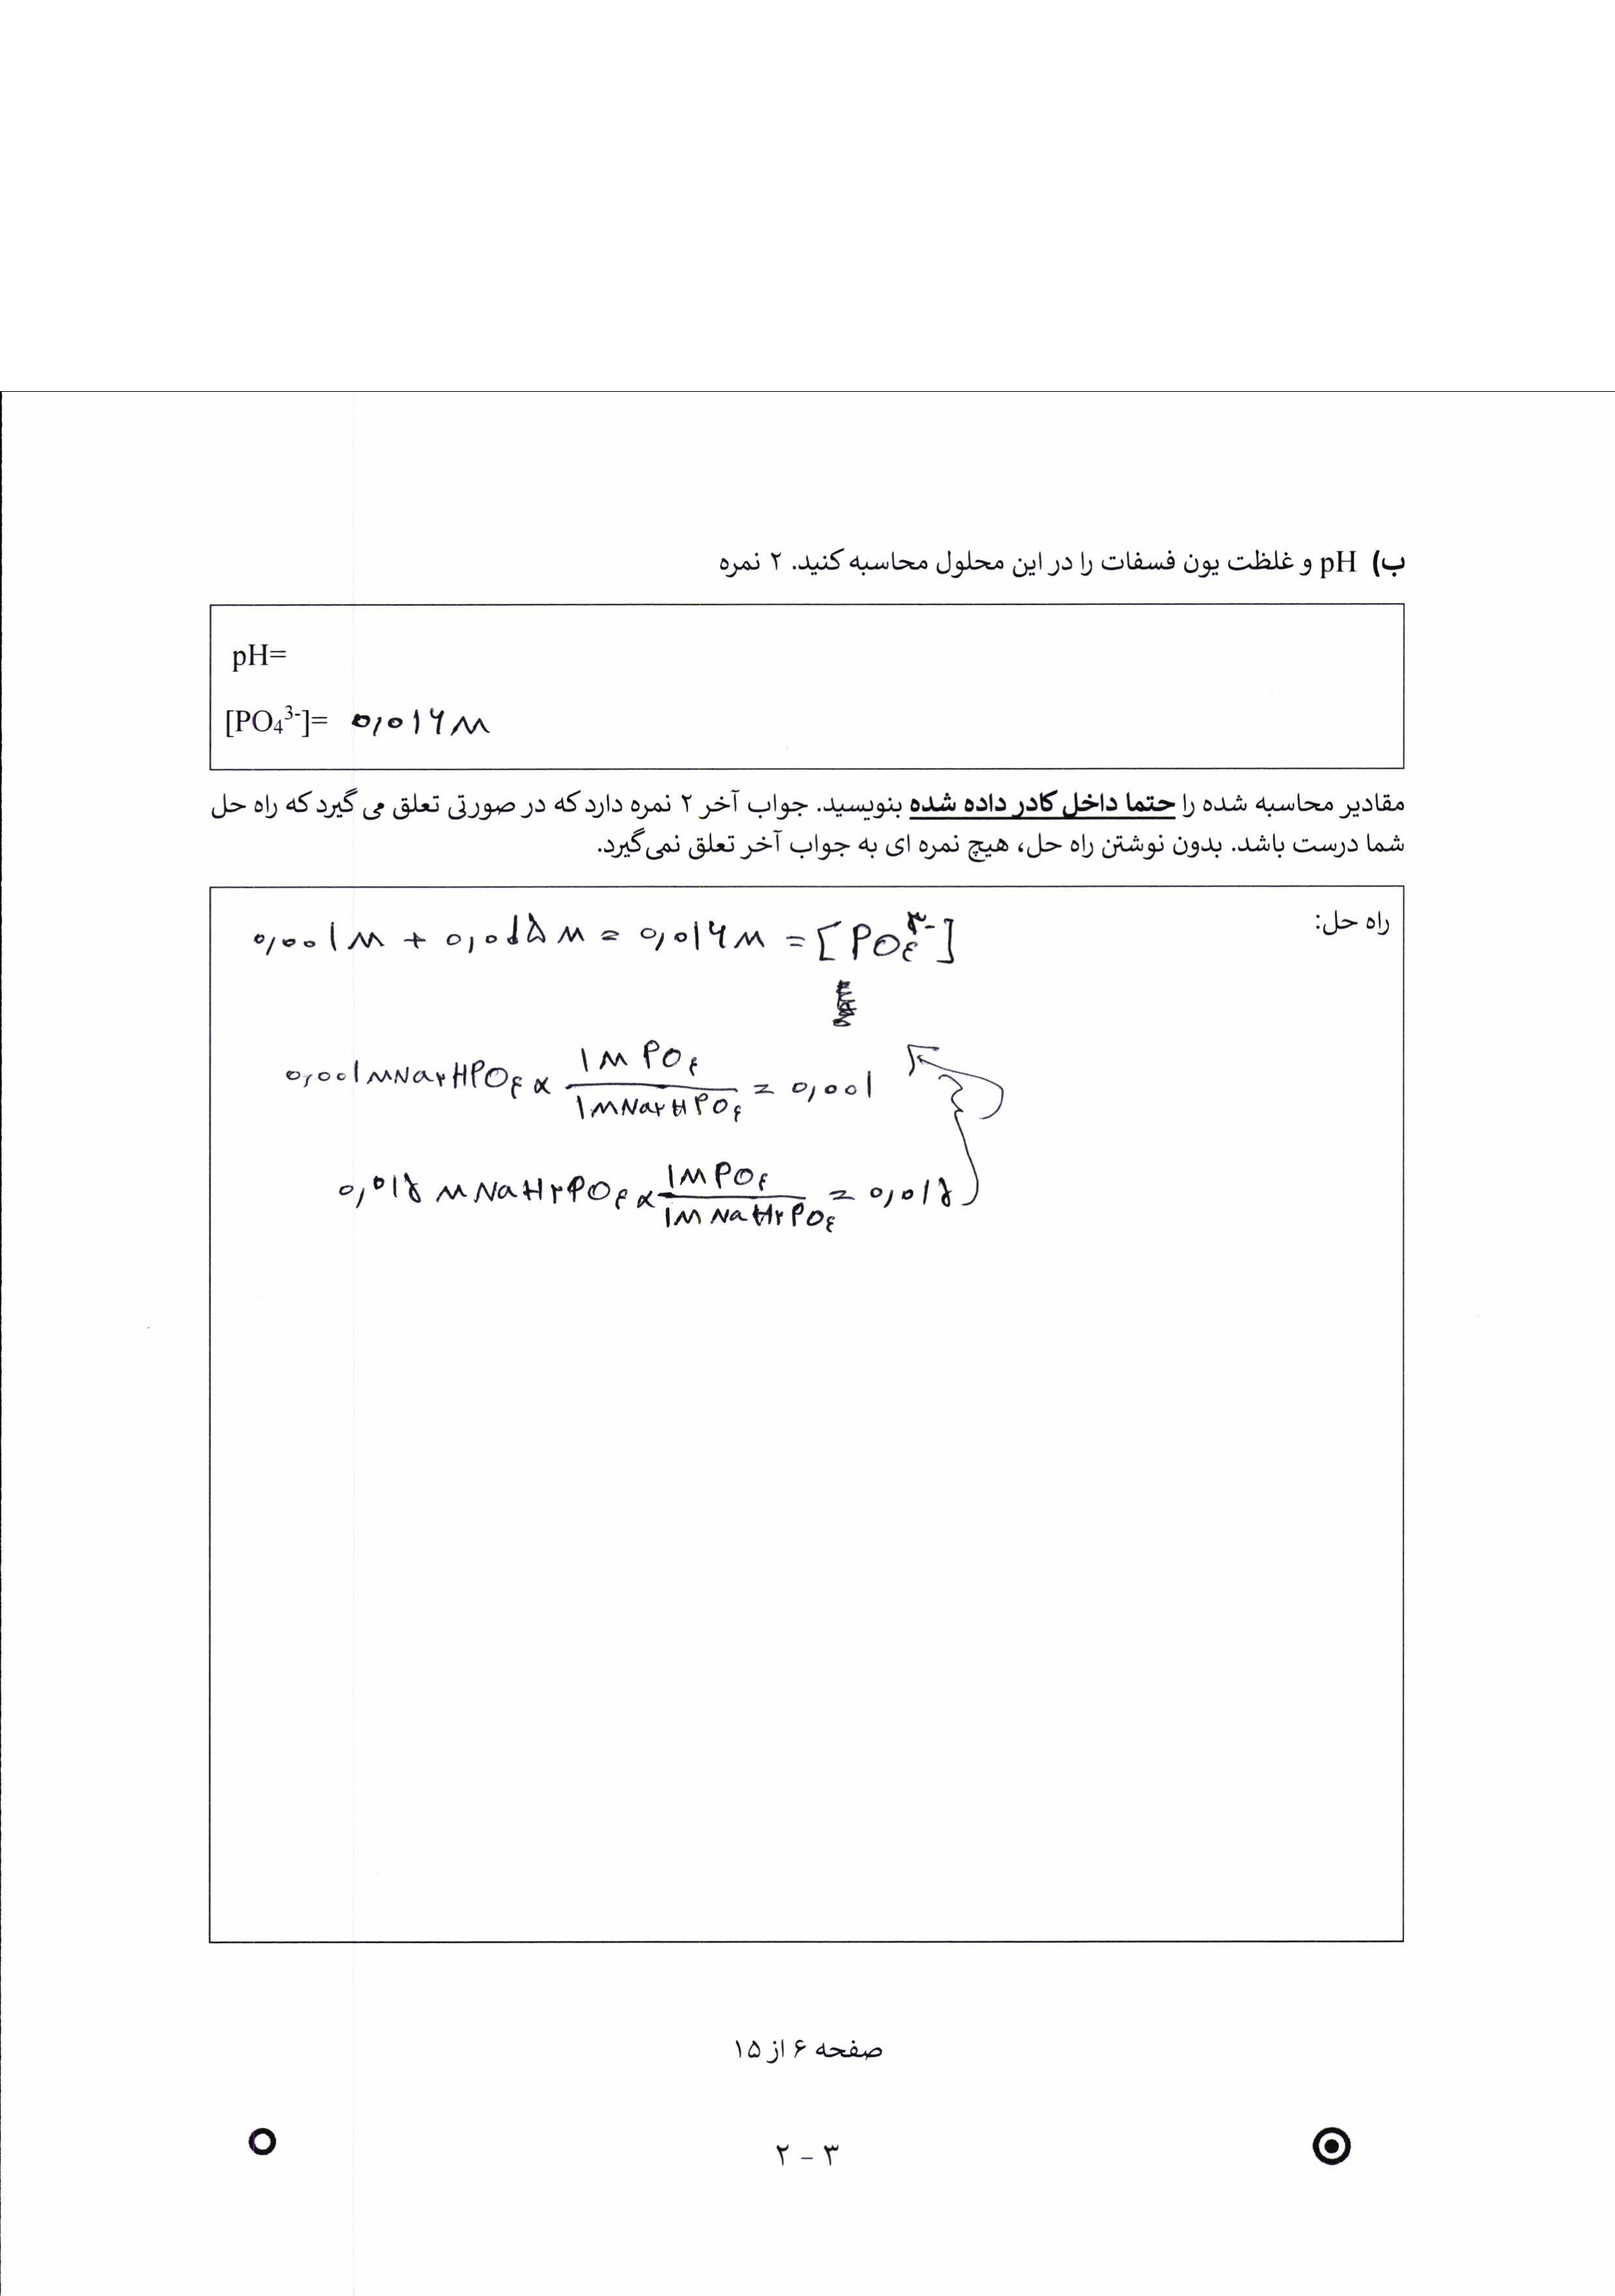 ب) pH و غلظت یون فسفات را در این محلول محاسبه کنید. ۲ نمره
pH=
[PO₄³⁻]= ۰٫۰۱۶ M
مقادیر محاسبه شده را حتما داخل کادر داده شده بنویسید. جواب آخر ۲ نمره دارد که در صورتی تعلق می گیرد که راه حل
شما درست باشد. بدون نوشتن راه حل، هیچ نمره ای به جواب آخر تعلق نمی‌گیرد.
راه حل:
۰٫۰۰۱ M + ۰٫۰۱۵ M = ۰٫۰۱۶ M = [PO۴³⁻]
۰٫۰۰۱ M Na۲HPO۴ × ۱ M PO۴ / ۱ M Na۲HPO۴ = ۰٫۰۰۱
۰٫۰۱۵ M NaH۲PO۴ × ۱ M PO۴ / ۱ M NaH۲PO۴ = ۰٫۰۱۵
صفحه ۶ از ۱۵
۲ - ۳